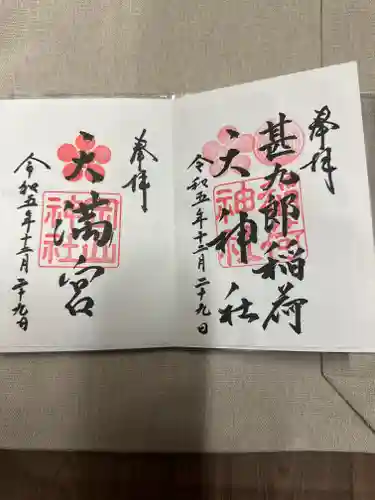 奉拝
甚九郎稲荷
天神社
令和五年十二月二十九日
奉拝
天満宮
令和五年十二月二十九日